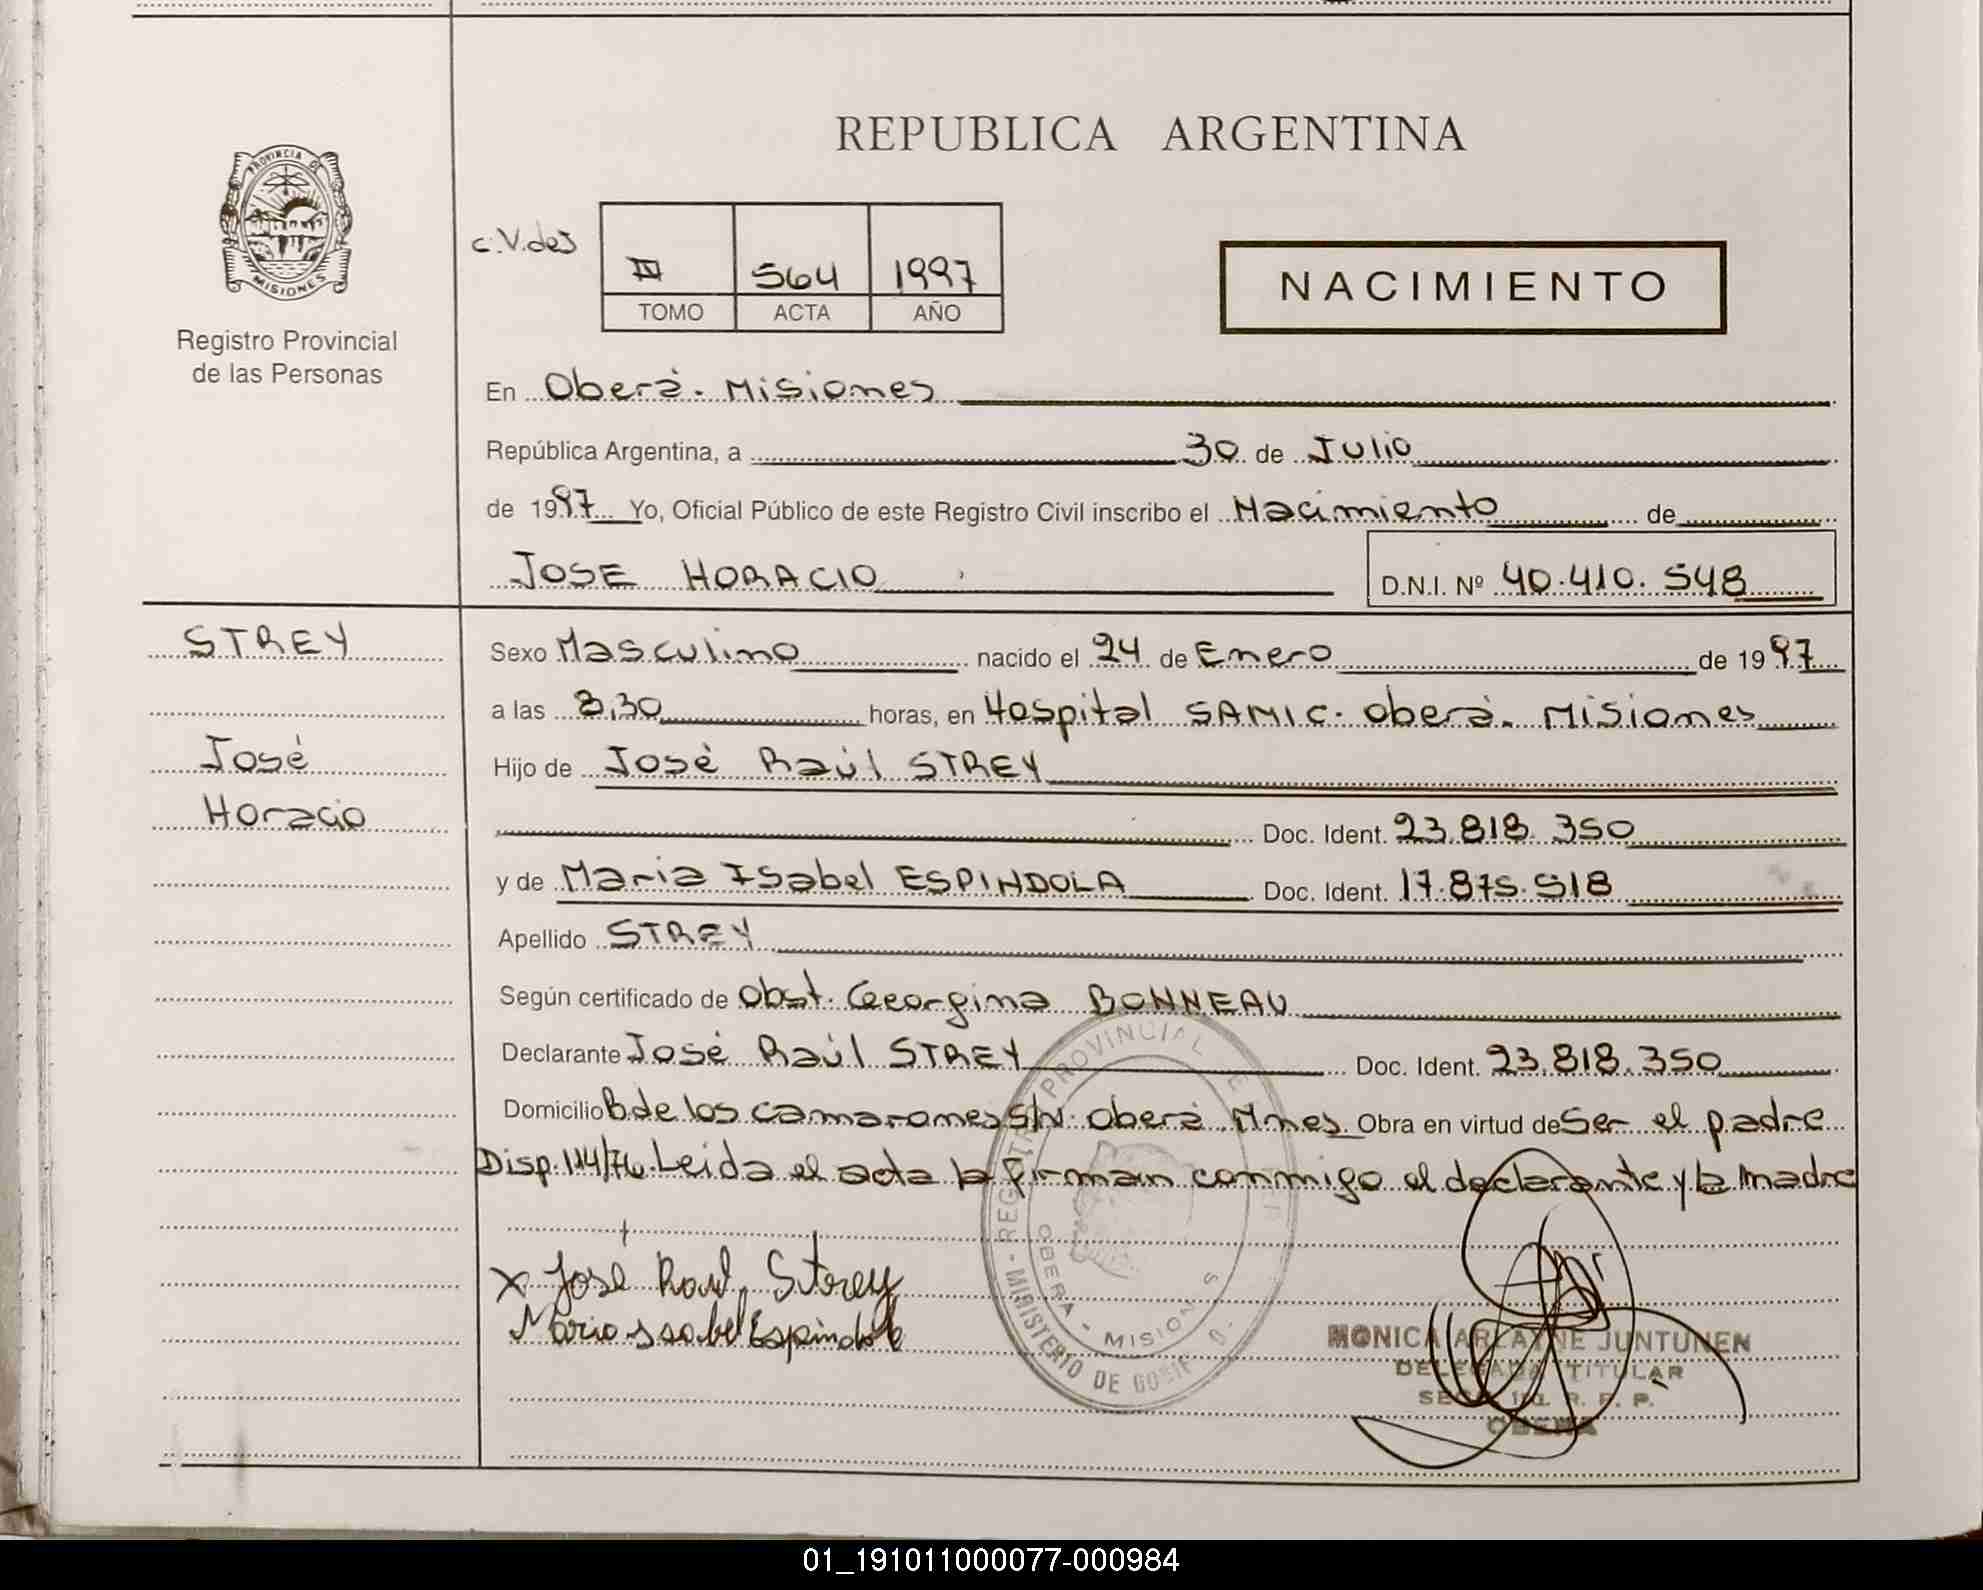 REPUBLICA ARGENTINA
PROVINCIA D
MISIONES
Registro Provincial
de las Personas
c.V.des
IV 564 1997
TOMO ACTA AÑO
NACIMIENTO
En Oberá. Misiones
República Argentina, a 30 de Julio
de 1997 Yo, Oficial Público de este Registro Civil inscribo el Nacimiento de
JOSE HORACIO D.N.I. Nº 40.410.548
STREY
José
Horacio
Sexo Masculino nacido el 24 de Enero de 1997
a las 8,30 horas, en Hospital SAMIC. Oberá. Misiones
Hijo de José Raúl STREY
Doc. Ident. 23.818.350
y de Maria Isabel ESPINDOLA Doc. Ident. 17.875.518
Apellido STREY
Según certificado de Obst. Georgina BONNEAU
Declarante José Raúl STREY Doc. Ident. 23.818.350
Domicilio B.de los camarones S/N. Oberá. Mnes. Obra en virtud de Ser el padre
Disp.114/76. Leida el acta la firman conmigo el declarante y la madre
X José Raul Strey
Maria Isabel Espindola
REGISTRO PROVINCIAL DE
MINISTERIO DE GOBIE
OBERA - MISIONES
MONICA ARLAYNE JUNTUNEN
DELEGADA TITULAR
SECC. R. P. P.
OBERA
01_191011000077-000984